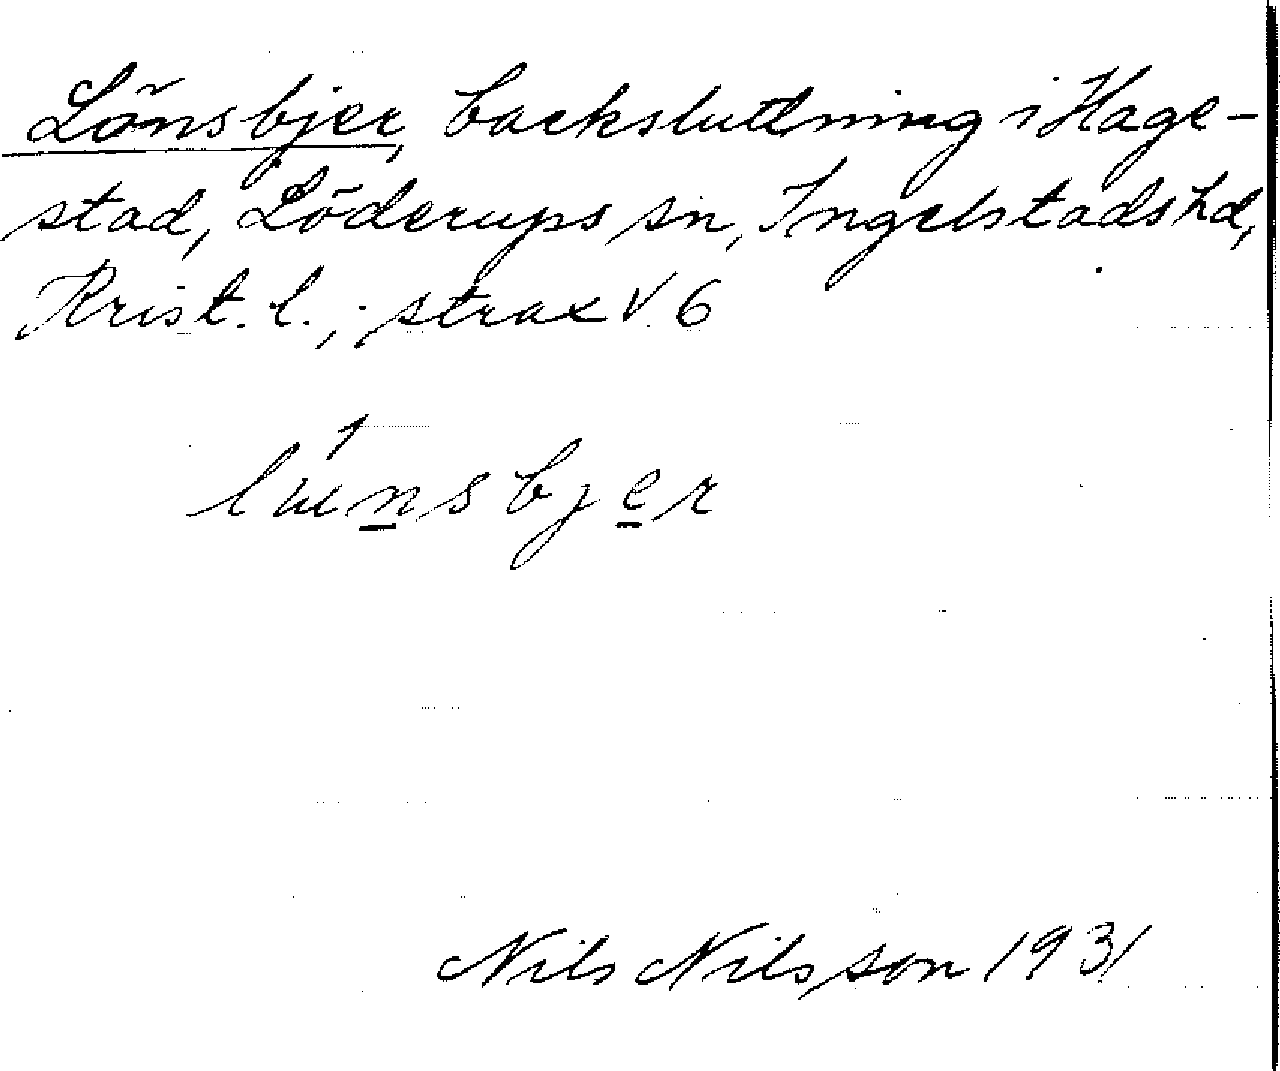 Lönsbjer, backsluttning i Hage-
stad, Löderups sn, Ingelstads hd,
Krist. l.; strax V. 6
Nils Nilsson 1931